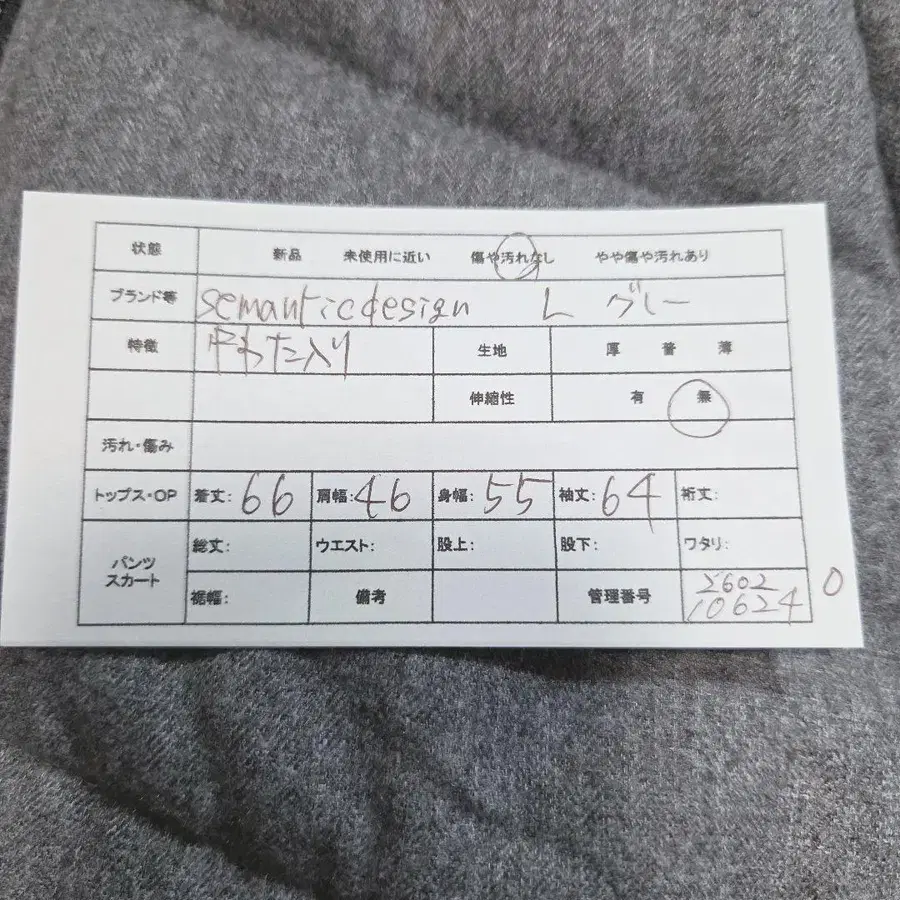 状態 新品 未使用に近い 傷や汚れなし やや傷や汚れあり
ブランド等 semanticdesign L グレー
特徴 中わた入り 生地 厚 普 薄
伸縮性 有 無
汚れ・傷み
トップス・OP 着丈: 66 肩幅: 46 身幅: 55 袖丈: 64 裄丈:
パンツ スカート 総丈: ウエスト: 股上: 股下: ワタリ:
裾幅: 備考 管理番号 2602
10624 0